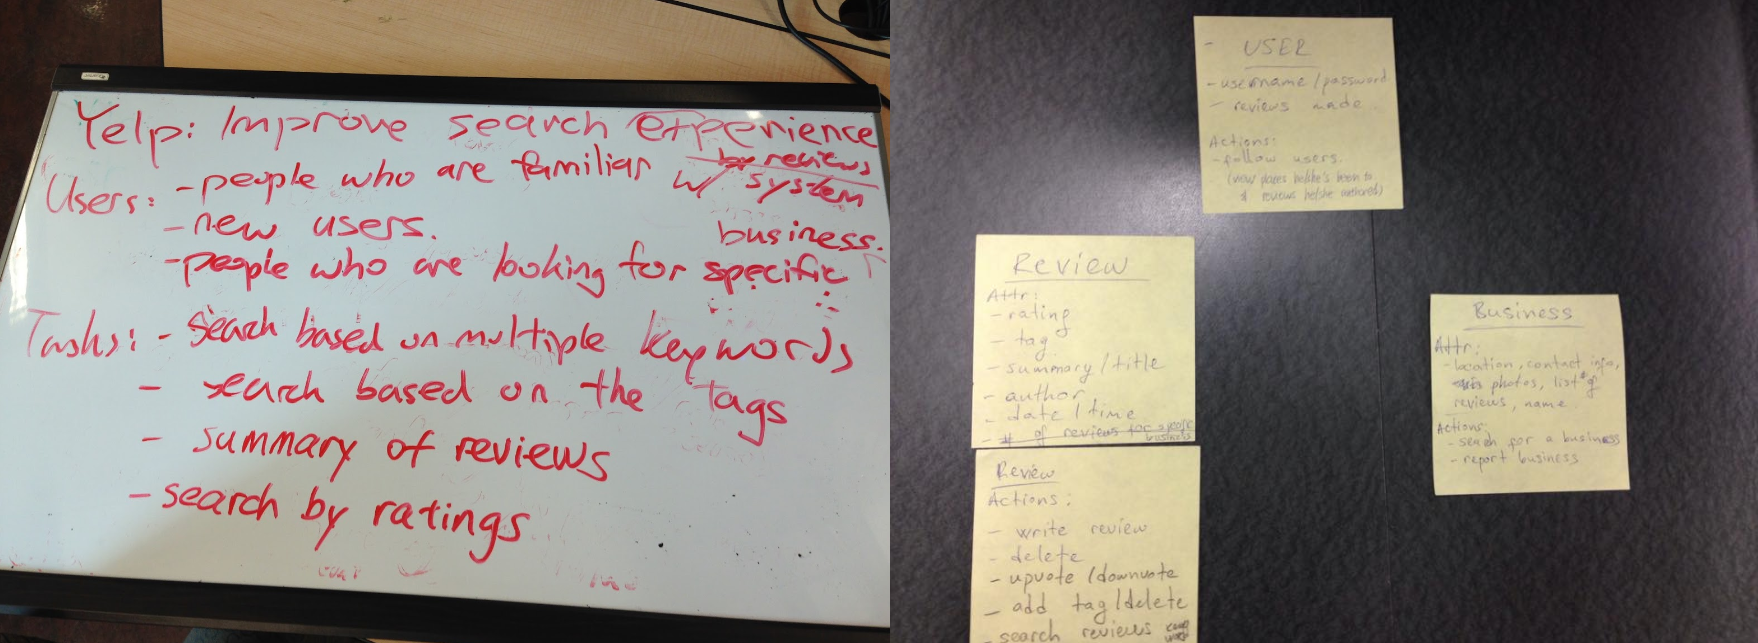 Yelp: Improve search experience
by reviews
Users: - people who are familiar w/ system
- new users.
business.
- people who are looking for specific
Tasks: - search based on multiple keywords
- search based on the tags
- summary of reviews
- search by ratings
- USER
- username / password
- reviews made
Actions:
- follow users.
(view places he/she's been to
& reviews he/she authored)
Review
Attr:
- rating
- tag
- summary / title
- author
- date / time
- # of reviews for a specific
business
Review
Actions:
- write review
- delete
- upvote / downvote
- add tag / delete
- search reviews
Business
Attr:
- location, contact info,
photos, list of
reviews, name
Actions:
- search for a business
- report business